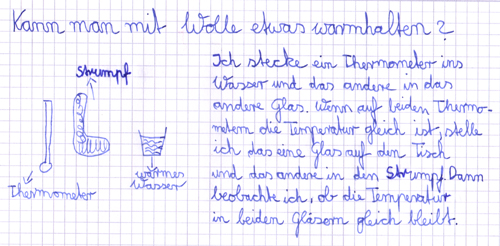 Kann man mit Wolle etwas warmhalten?
Strumpf
Thermometer
warmes
Wasser
Ich stecke ein Thermometer ins
Wasser und das andere in das
andere Glas. Wenn auf beiden Thermo-
metern die Temperatur gleich ist, stelle
ich das eine Glas auf den Tisch
und das andere in den Strumpf. Dann
beobachte ich, ob die Temperatur
in beiden Gläsern gleich bleibt.